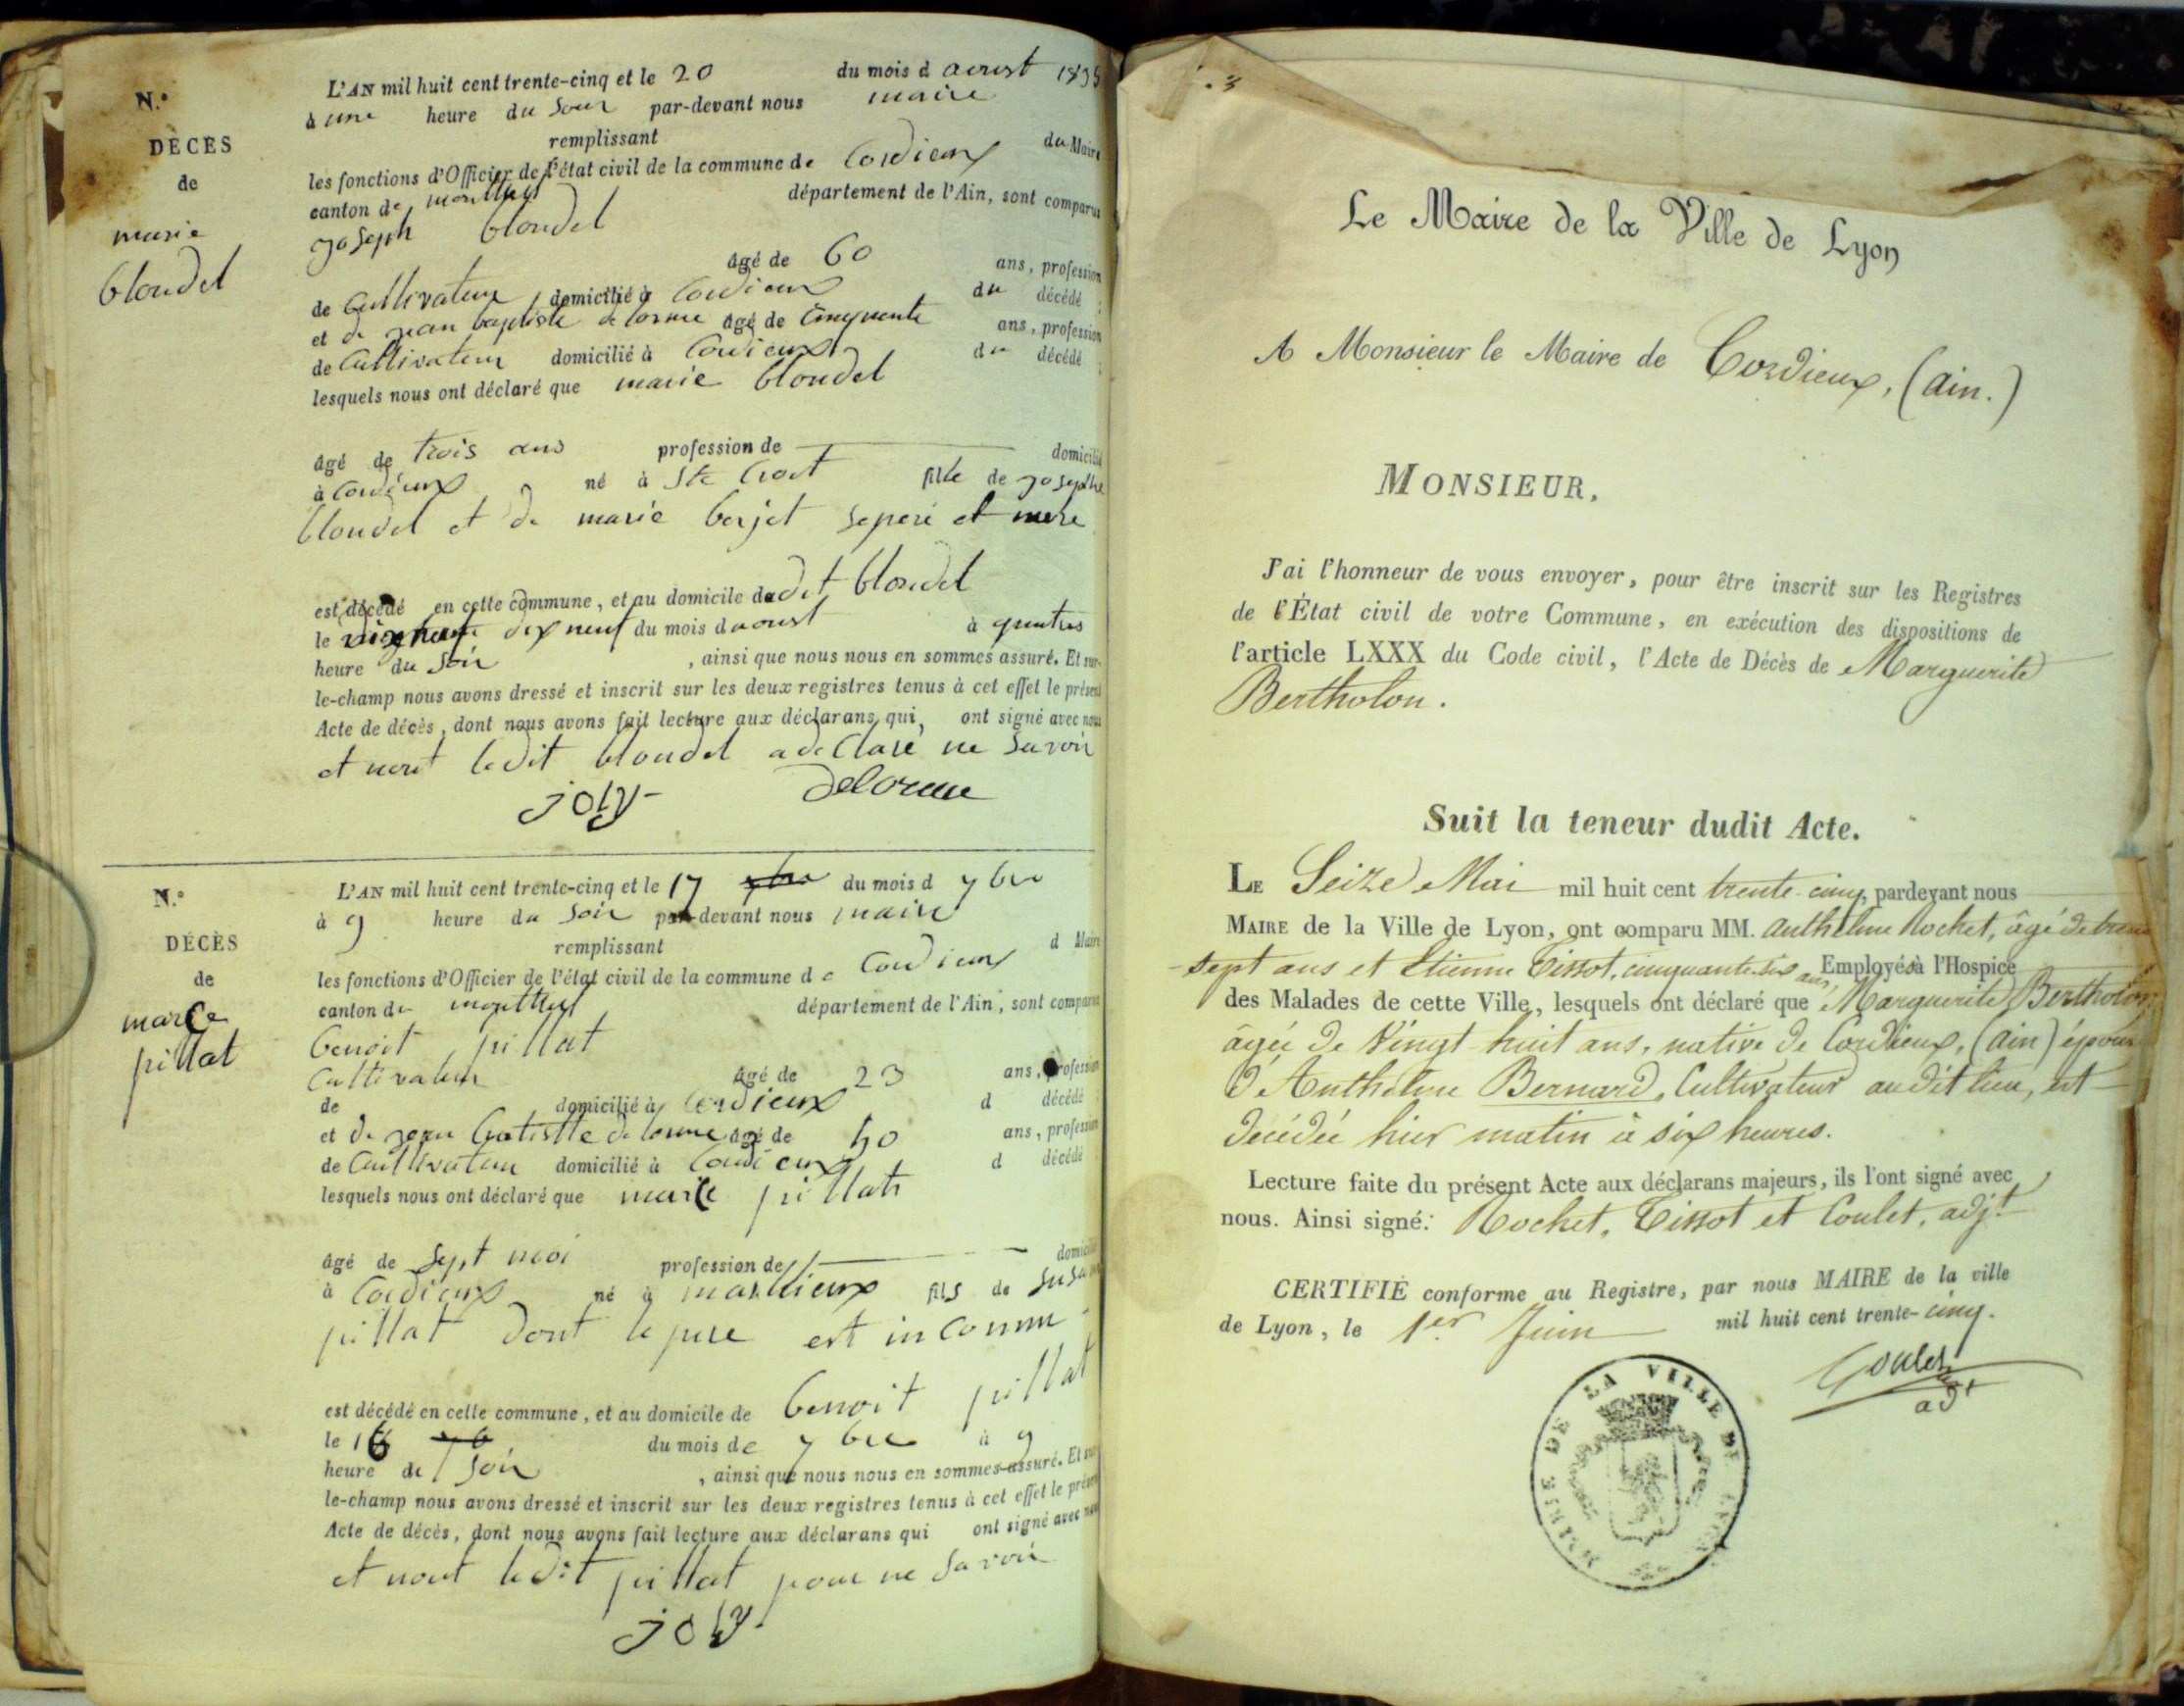 N.º
DÉCÈS
de
marie
bloudel
L'AN mil huit cent trente-cinq et le 20 du mois d aoust 1835
à une heure du Soir par-devant nous maire
remplissant du Maire
les fonctions d'Officier de l'état civil de la commune de Cordieux
canton de montluel département de l'Ain, sont comparus
joseph bloudel
âgé de 60 ans, profession
de Cultivateur domicilié à Cordieux du décédé ;
et de jean baptiste delorme âgé de Cinquente ans, profession
de Cultivateur domicilié à Cordieux du décédé ;
lesquels nous ont déclaré que marie bloudel
âgé de trois ans profession de domicilié
à Cordieux né à Ste Croit fille de josephe
bloudel et de marie berjet se pere et mere
est décédé en cette commune, et au domicile dudit bloudel
le dix neuf du mois d aoust à quatres
heure du Soir , ainsi que nous nous en sommes assuré. Et sur-
le-champ nous avons dressé et inscrit sur les deux registres tenus à cet effet le présent
Acte de décès, dont nous avons fait lecture aux déclarans, qui ont signé avec nous
et nont ledit bloudel a de Claré ne Savoir
joly delorme
N.º
DÉCÈS
de
marie
pillat
L'AN mil huit cent trente-cinq et le 17 7bre du mois d 7bre
à 9 heure du Soir par-devant nous maire
remplissant d Maire
les fonctions d'Officier de l'état civil de la commune de Cordieux
canton de montluel département de l'Ain, sont comparus
benoit pillat
Cultivateur âgé de 23 ans, profession
de domicilié à Cordieux d décédé
et de jean batistte delorme âgé de 50 ans, profession
de Cultivateur domicilié à Cordieux d décédé
lesquels nous ont déclaré que marie pillat
âgé de Sept moi profession de domicilié
à Cordieux né à fils de
pillat dont le pere est inconnu
est décédé en cette commune, et au domicile de benoit pillat
le 16 du mois de 7bre à 9
heure de Soir , ainsi que nous nous en sommes assuré. Et sur
le-champ nous avons dressé et inscrit sur les deux registres tenus à cet effet le présent
Acte de décès, dont nous avons fait lecture aux déclarans qui ont signé avec nous
et nont ledit pillat pour ne Savoir
joly
Le Maire de la Ville de Lyon
A Monsieur le Maire de Cordieux, (ain.)
MONSIEUR,
J'ai l'honneur de vous envoyer, pour être inscrit sur les Registres
de l'État civil de votre Commune, en exécution des dispositions de
l'article LXXX du Code civil, l'Acte de Décès de Marguerite
Bertholon.
Suit la teneur dudit Acte.
LE Seize Mai mil huit cent trente-cinq, pardevant nous
MAIRE de la Ville de Lyon, ont comparu MM. Anthelme Rochet, âgé de trente
-sept ans et Etienne Tissot, cinquante-six ans, Employés à l'Hospice
des Malades de cette Ville, lesquels ont déclaré que Marguerite Bertholon,
âgée de Vingt-huit ans, native de Cordieux, (ain) épouse
d'Anthelme Bernard, Cultivateur audit lieu, est
décédée hier matin à six heures.
Lecture faite du présent Acte aux déclarans majeurs, ils l'ont signé avec
nous. Ainsi signé: Rochet, Tissot et Coulet, adj.t
CERTIFIÉ conforme au Registre, par nous MAIRE de la ville
de Lyon, le 1er Juin mil huit cent trente-cinq.
Coulet
adjt
MAIRIE DE LA VILLE DE LYON